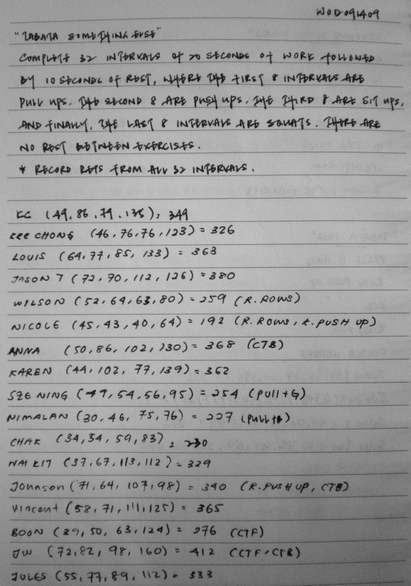 WOD 091409
"TABATA SOMETHING ELSE"
COMPLETE 32 INTERVALS OF 20 SECONDS OF WORK FOLLOWED
BY 10 SECONDS OF REST, WHERE THE FIRST 8 INTERVALS ARE
PULL UPS. THE SECOND 8 ARE PUSH UPS, THE THIRD 8 ARE SIT UPS,
AND FINALLY, THE LAST 8 INTERVALS ARE SQUATS. THERE ARE
NO REST BETWEEN EXERCISES.
* RECORD REPS FROM ALL 32 INTERVALS.
KC (49, 86, 79, 135), 349
KEE CHONG (46, 76, 76, 123) = 326
LOUIS (64, 77, 85, 133) = 363
JASON T (72, 70, 112, 126) = 380
WILSON (52, 64, 63, 80) = 259 (R. ROWS)
NICOLE (45, 43, 40, 64) = 192 (R. ROWS, K. PUSH UP)
ANNA (50, 86, 102, 130) = 368 (CTB)
KAREN (44, 102, 77, 139) = 362
SZE NING (49, 54, 56, 95) = 254 (PULL+G)
NIMALAN (30, 46, 75, 76) = 227 (PULL+B)
CHAK (34, 54, 59, 83), 230
HAI KIT (37, 67, 113, 112) = 329
Johnson (71, 64, 107, 98) = 340 (R. PUSH UP, CTB)
Vincent (58, 71, 111, 125) = 365
BOON (39, 50, 63, 124) = 276 (CTF)
JW (72, 82, 98, 160) = 412 (CTF + CTB)
JULES (55, 77, 89, 112) = 333